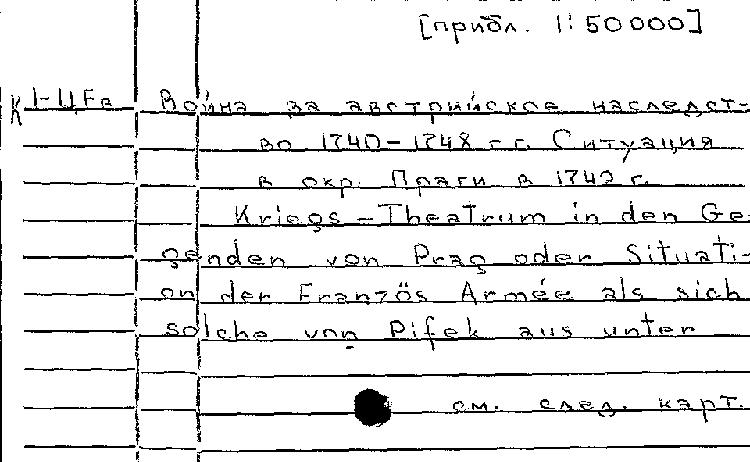 [прибл. 1:50000]
К 1-ЦЕв Война за австрийское наследст-
во 1740-1748 г.г. Ситуация
в окр. Праги в 1742 г.
Kriegs-Theatrum in den Ge-
genden von Prag oder Situati-
on der Französ Armée als sich
solche von Pifek aus unter
см. след. карт.